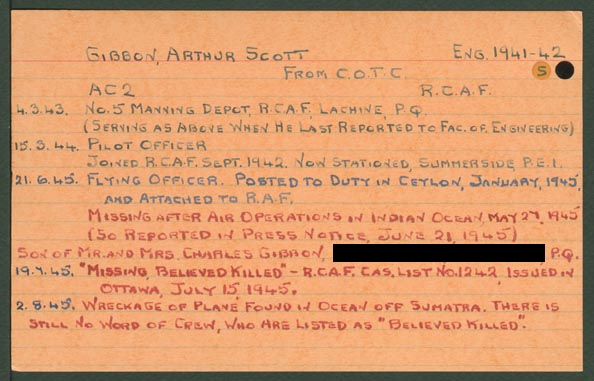 GIBBON, ARTHUR SCOTT ENG. 1941-42
FROM C.O.T.C. S
AC2 R.C.A.F.
4.3.43. NO. 5 MANNING DEPOT, R.C.A.F. LACHINE, P.Q.
(SERVING AS ABOVE WHEN HE LAST REPORTED TO FAC. OF ENGINEERING)
15.3.44. PILOT OFFICER
JOINED R.C.A.F. SEPT. 1942. NOW STATIONED, SUMMERSIDE, P.E.I.
21.6.45. FLYING OFFICER. POSTED TO DUTY IN CEYLON, JANUARY, 1945,
AND ATTACHED TO R.A.F.
MISSING AFTER AIR OPERATIONS IN INDIAN OCEAN, MAY 27, 1945
(SO REPORTED IN PRESS NOTICE, JUNE 21, 1945)
SON OF MR. AND MRS. CHARLES GIBBON, P.Q.
19.7.45. "MISSING, BELIEVED KILLED" - R.C.A.F. CAS. LIST NO. 1242, ISSUED IN
OTTAWA, JULY 15, 1945.
2.8.45. WRECKAGE OF PLANE FOUND IN OCEAN OFF SUMATRA. THERE IS
STILL NO WORD OF CREW, WHO ARE LISTED AS "BELIEVED KILLED".